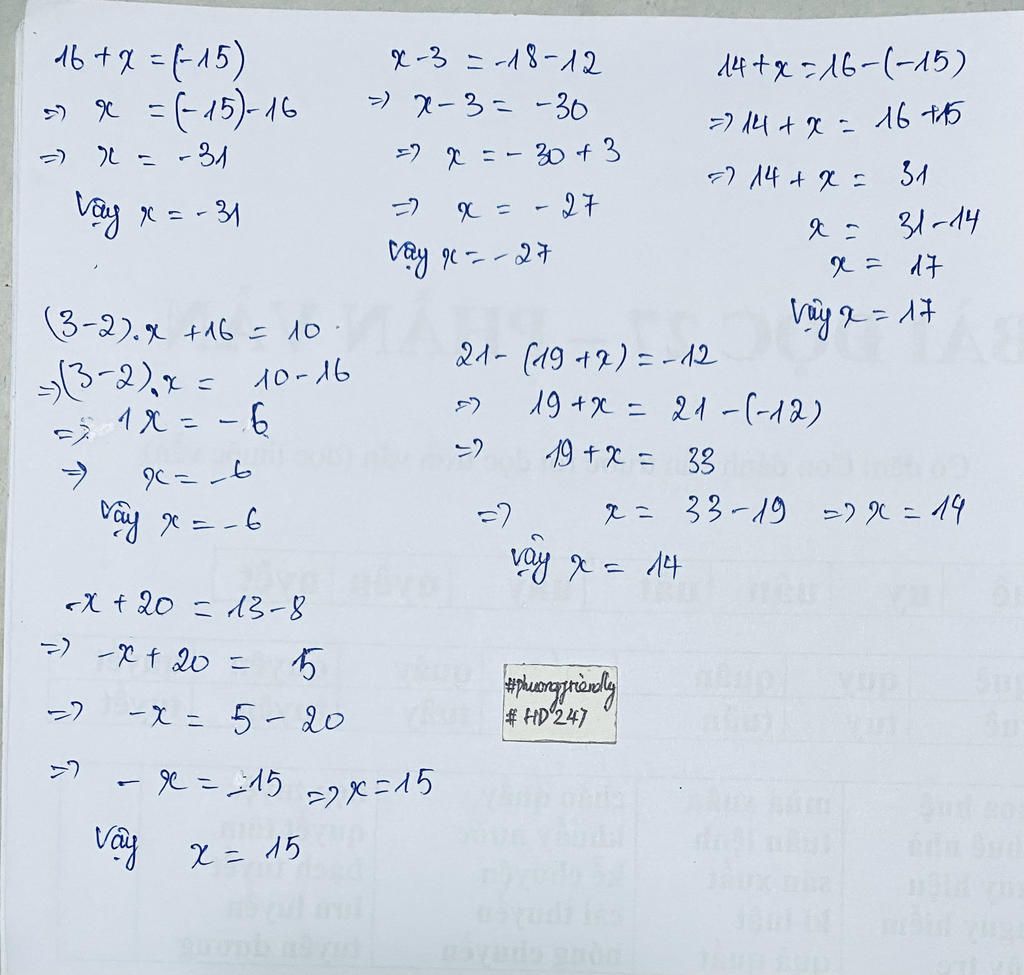 16 + x = (-15)
=> x = (-15) - 16
=> x = -31
Vậy x = -31
x - 3 = -18 - 12
=> x - 3 = -30
=> x = -30 + 3
=> x = -27
Vậy x = -27
14 + x = 16 - (-15)
=> 14 + x = 16 + 15
=> 14 + x = 31
x = 31 - 14
x = 17
Vậy x = 17
(3-2).x + 16 = 10
=> (3-2).x = 10 - 16
=> 1x = -6
=> x = -6
Vậy x = -6
21 - (19 + x) = -12
=> 19 + x = 21 - (-12)
=> 19 + x = 33
=> x = 33 - 19 => x = 14
Vậy x = 14
-x + 20 = 13 - 8
=> -x + 20 = 5
=> -x = 5 - 20
=> -x = -15 => x = 15
Vậy x = 15
#phuongfriendly
#HD247